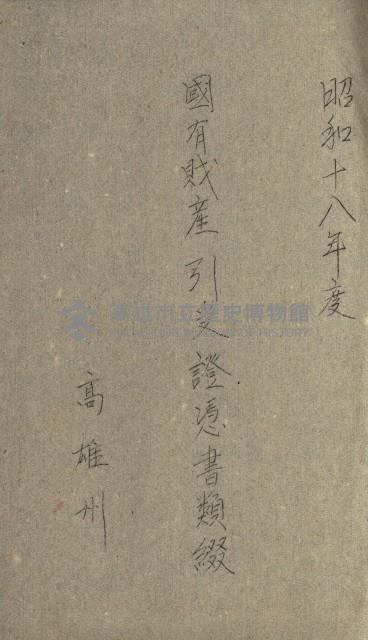 昭和十八年度
國有財産引受證憑書類綴
高雄州
高雄市立歷史博物館
KAOHSIUNG MUSEUM OF HISTORY